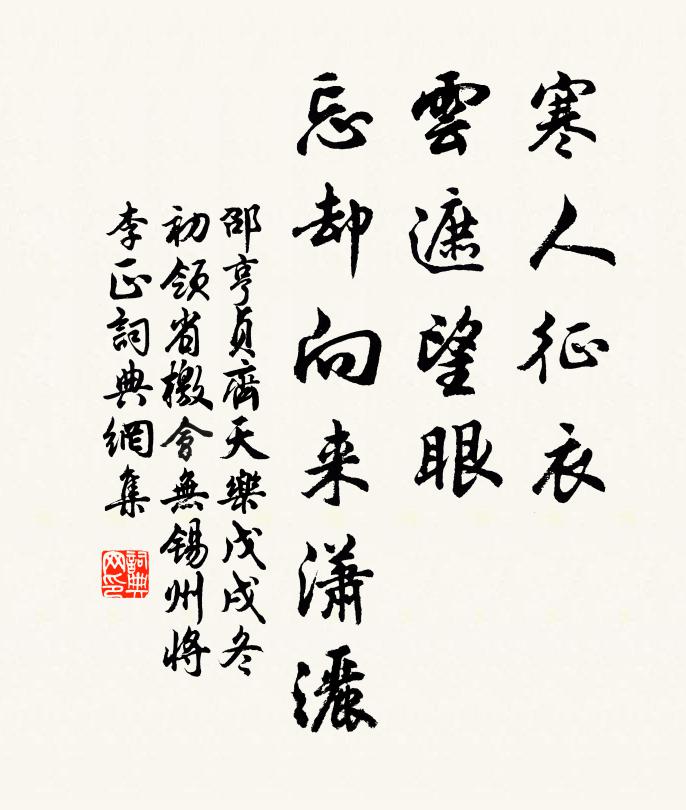 寒人征衣
雲遮望眼
忘却向来瀟灑
邵亨貞齊天樂戊戌冬
初領省檄會無錫州將
李正詞典網集
詞典網印